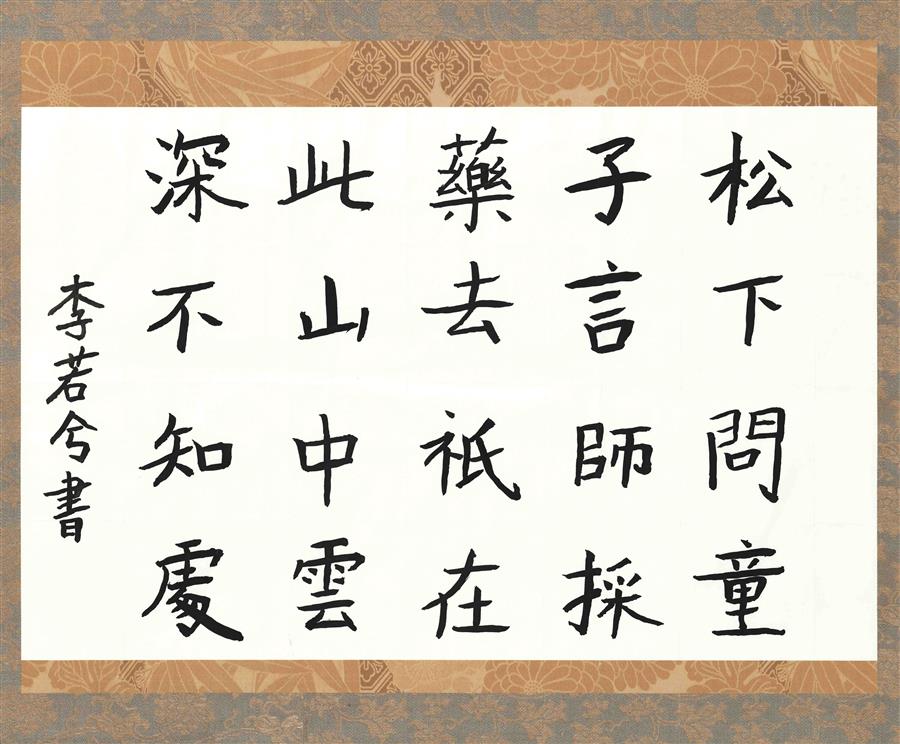 松下問童
子言師採
藥去祇在
此山中雲
深不知處
李若兮書